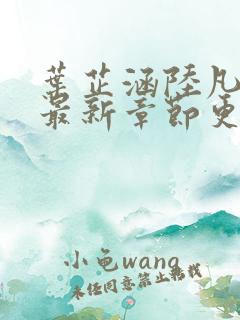 葉芷涵陸凡
最新章節更
小龟wang
未经同意禁止转载